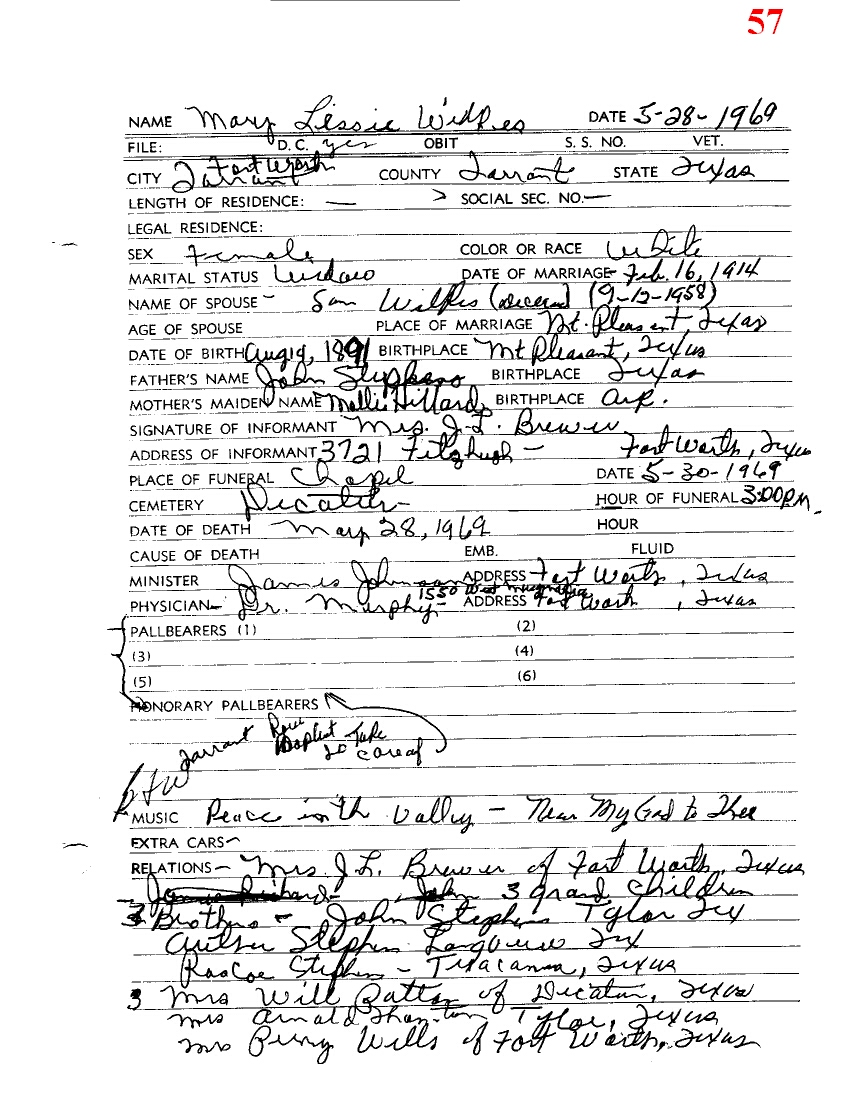 57
NAME Mary Lissie Wilkes DATE 5-28-1969
FILE: D.C. yes OBIT S. S. NO. VET.
Fort Worth
CITY Tarrant COUNTY Tarrant STATE Texas
LENGTH OF RESIDENCE: — > SOCIAL SEC. NO. —
LEGAL RESIDENCE:
SEX Female COLOR OR RACE White
MARITAL STATUS Widow DATE OF MARRIAGE Feb. 16, 1914
NAME OF SPOUSE - Sam Wilkes (deceased) (9-12-1958)
AGE OF SPOUSE PLACE OF MARRIAGE Mt. Pleasant, Texas
DATE OF BIRTH Aug 19, 1891 BIRTHPLACE Mt Pleasant, Texas
FATHER'S NAME John Stephens BIRTHPLACE Texas
MOTHER'S MAIDEN NAME Mollie Hillard BIRTHPLACE Ark.
SIGNATURE OF INFORMANT Mrs. J.L. Brewer
ADDRESS OF INFORMANT 3721 Fitzhugh - Fort Worth, Texas
PLACE OF FUNERAL Chapel DATE 5-30-1969
CEMETERY Decatur HOUR OF FUNERAL 3:00 P.M.
DATE OF DEATH May 28, 1969 HOUR
CAUSE OF DEATH EMB. FLUID
MINISTER James Johnson ADDRESS Fort Worth, Texas
1550 West
PHYSICIAN - Dr. Murphy - ADDRESS Fort Worth, Texas
PALLBEARERS (1) (2)
(3) (4)
(5) (6)
HONORARY PALLBEARERS
Tarrant Baptist Take
care of
MUSIC Peace in th Valley - Near My God to Thee
EXTRA CARS -
RELATIONS - Mrs. J.L. Brewer of Fort Worth, Texas
3 grand children
3 Brothers - John Stephens Tyler Tex
Stephens Longview Tex
Roscoe Stephens - Texarkana, Texas
3 Mrs Will Patton of Decatur, Texas
Mrs Arnold Thornton Tyler, Texas
Mrs Perry Wills of Fort Worth, Texas